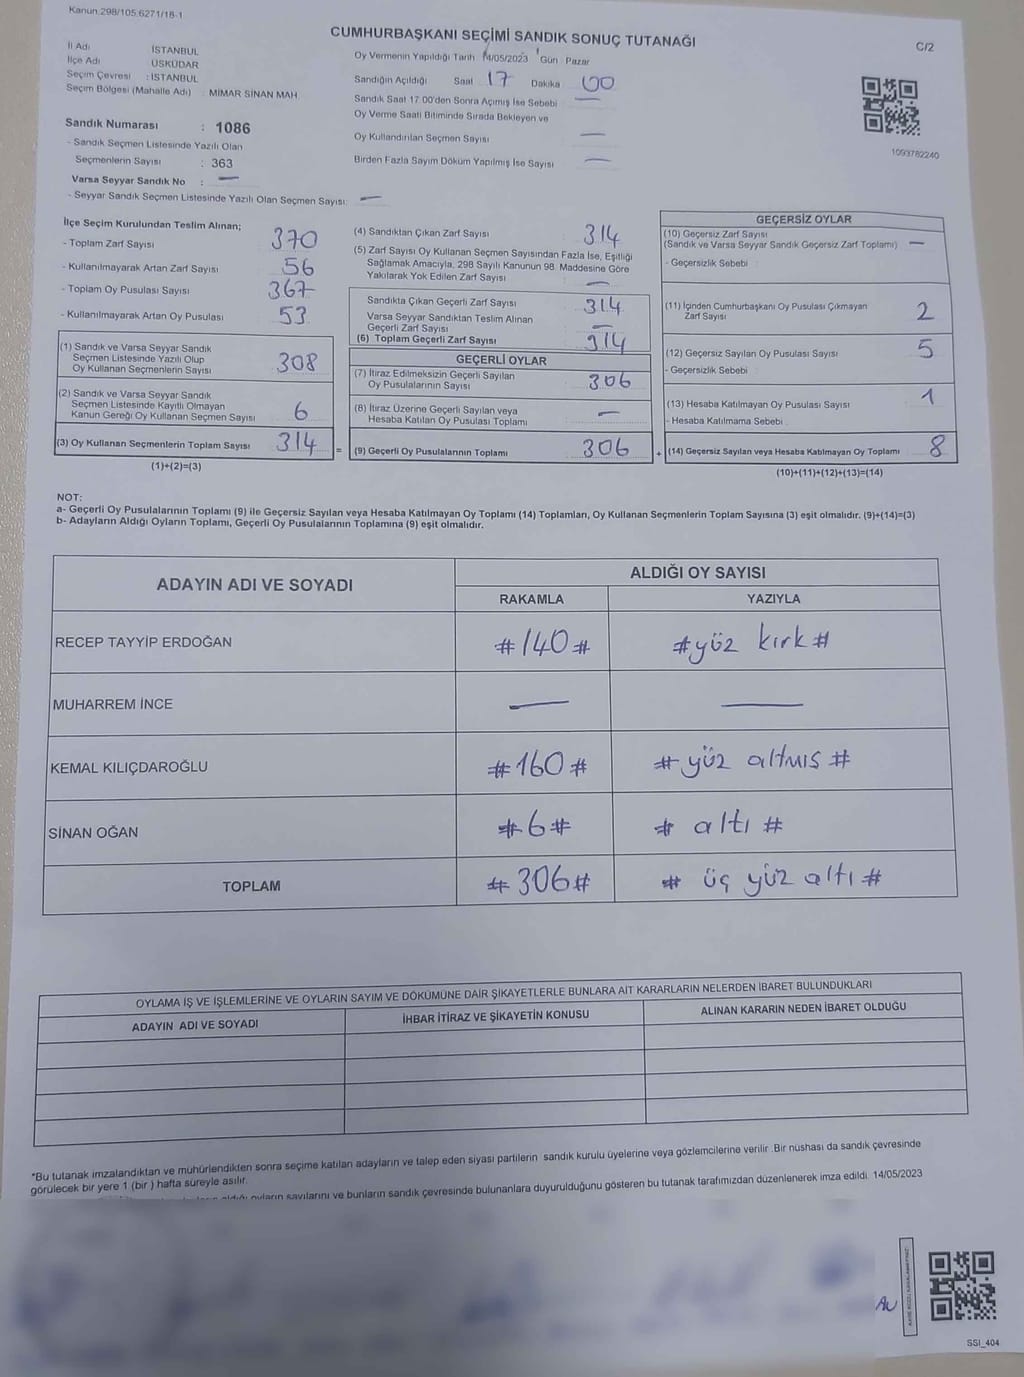 Kanun:298/105,6271/18-1
CUMHURBAŞKANI SEÇİMİ SANDIK SONUÇ TUTANAĞI
C/2
İl Adı : İSTANBUL
İlçe Adı : ÜSKÜDAR
Seçim Çevresi : İSTANBUL
Seçim Bölgesi (Mahalle Adı) : MİMAR SİNAN MAH.
Sandık Numarası : 1086
- Sandık Seçmen Listesinde Yazılı Olan
Seçmenlerin Sayısı : 363
Varsa Seyyar Sandık No : —
- Seyyar Sandık Seçmen Listesinde Yazılı Olan Seçmen Sayısı: —
Oy Vermenin Yapıldığı Tarih 14/05/2023 Gün Pazar
Sandığın Açıldığı Saat 17 Dakika 00
Sandık Saat 17:00'den Sonra Açımış İse Sebebi —
Oy Verme Saati Bitiminde Sırada Bekleyen ve
Oy Kullandırılan Seçmen Sayısı —
Birden Fazla Sayım Döküm Yapılmış İse Sayısı —
1093782240
İlçe Seçim Kurulundan Teslim Alınan;
- Toplam Zarf Sayısı 370
- Kullanılmayarak Artan Zarf Sayısı 56
- Toplam Oy Pusulası Sayısı 367
- Kullanılmayarak Artan Oy Pusulası 53
(1) Sandık ve Varsa Seyyar Sandık
Seçmen Listesinde Yazılı Olup
Oy Kullanan Seçmenlerin Sayısı 308
(2) Sandık ve Varsa Seyyar Sandık
Seçmen Listesinde Kayıtlı Olmayan
Kanun Gereği Oy Kullanan Seçmen Sayısı 6
(3) Oy Kullanan Seçmenlerin Toplam Sayısı 314 =
(1)+(2)=(3)
(4) Sandıktan Çıkan Zarf Sayısı 314
(5) Zarf Sayısı Oy Kullanan Seçmen Sayısından Fazla İse, Eşitliği
Sağlamak Amacıyla, 298 Sayılı Kanunun 98. Maddesine Göre
Yakılarak Yok Edilen Zarf Sayısı —
Sandıkta Çıkan Geçerli Zarf Sayısı 314
Varsa Seyyar Sandıktan Teslim Alınan
Geçerli Zarf Sayısı —
(6) Toplam Geçerli Zarf Sayısı 314
GEÇERLİ OYLAR
(7) İtiraz Edilmeksizin Geçerli Sayılan
Oy Pusulalarının Sayısı 306
(8) İtiraz Üzerine Geçerli Sayılan veya
Hesaba Katılan Oy Pusulası Toplamı —
(9) Geçerli Oy Pusulalarının Toplamı 306 +
GEÇERSİZ OYLAR
(10) Geçersiz Zarf Sayısı
(Sandık ve Varsa Seyyar Sandık Geçersiz Zarf Toplamı) —
- Geçersizlik Sebebi :
(11) İçinden Cumhurbaşkanı Oy Pusulası Çıkmayan
Zarf Sayısı 2
(12) Geçersiz Sayılan Oy Pusulası Sayısı 5
- Geçersizlik Sebebi :
(13) Hesaba Katılmayan Oy Pusulası Sayısı 1
- Hesaba Katılmama Sebebi :
(14) Geçersiz Sayılan veya Hesaba Katılmayan Oy Toplamı 8
(10)+(11)+(12)+(13)=(14)
NOT:
a- Geçerli Oy Pusulalarının Toplamı (9) ile Geçersiz Sayılan veya Hesaba Katılmayan Oy Toplamı (14) Toplamları, Oy Kullanan Seçmenlerin Toplam Sayısına (3) eşit olmalıdır. (9)+(14)=(3)
b- Adayların Aldığı Oyların Toplamı, Geçerli Oy Pusulalarının Toplamına (9) eşit olmalıdır.
ADAYIN ADI VE SOYADI
ALDIĞI OY SAYISI
RAKAMLA YAZIYLA
RECEP TAYYİP ERDOĞAN #140# #yüz kırk#
MUHARREM İNCE — —
KEMAL KILIÇDAROĞLU #160# #yüz altmış#
SİNAN OĞAN #6# # altı #
TOPLAM #306# # üç yüz altı #
OYLAMA İŞ VE İŞLEMLERİNE VE OYLARIN SAYIM VE DÖKÜMÜNE DAİR ŞİKAYETLERLE BUNLARA AİT KARARLARIN NELERDEN İBARET BULUNDUKLARI
ADAYIN ADI VE SOYADI İHBAR İTİRAZ VE ŞİKAYETİN KONUSU ALINAN KARARIN NEDEN İBARET OLDUĞU
*Bu tutanak imzalandıktan ve mühürlendikten sonra seçime katılan adayların ve talep eden siyasi partilerin sandık kurulu üyelerine veya gözlemcilerine verilir .Bir nüshası da sandık çevresinde
görülecek bir yere 1 (bir ) hafta süreyle asılır.
aldığı oyların sayılarını ve bunların sandık çevresinde bulunanlara duyurulduğunu gösteren bu tutanak tarafımızdan düzenlenerek imza edildi. 14/05/2023
SSI_404